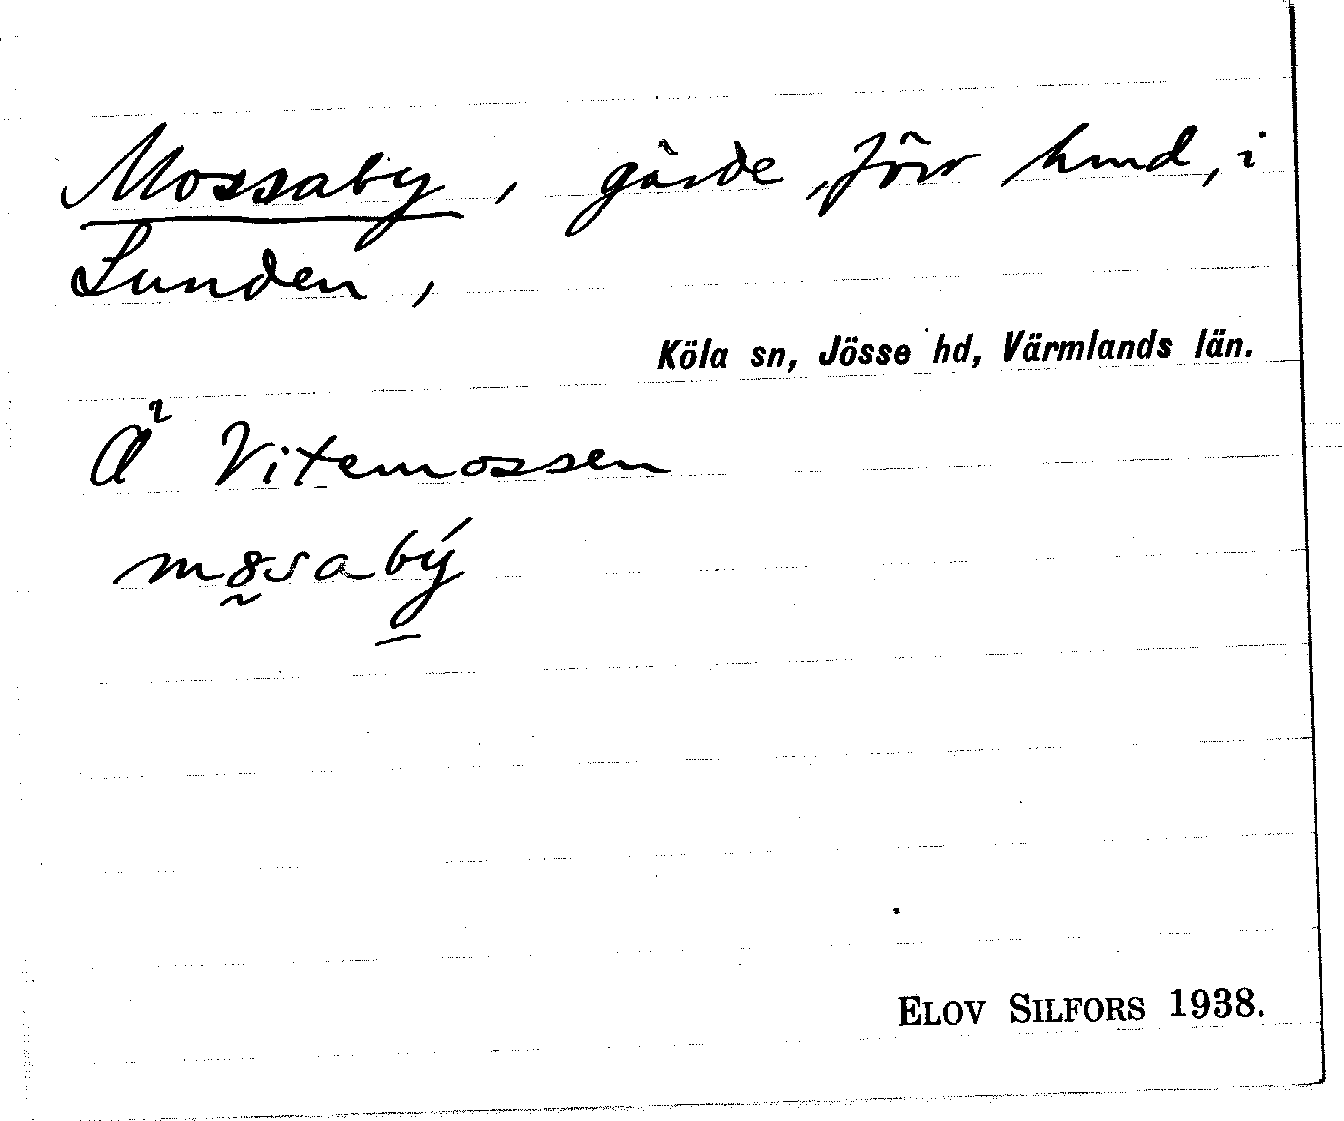 Mossaby, gärde, förr hmd, i
Lunden,
Köla sn, Jösse hd, Värmlands län.
Å Vitemossen
Elov Silfors 1938.